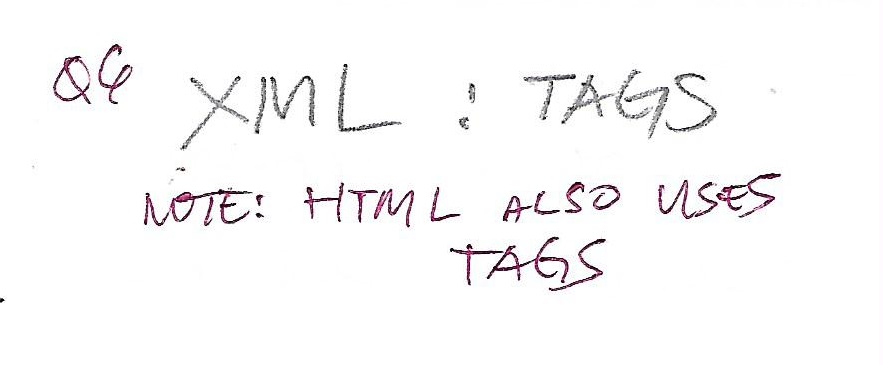 Q6 XML : TAGS
NOTE: HTML ALSO USES
TAGS